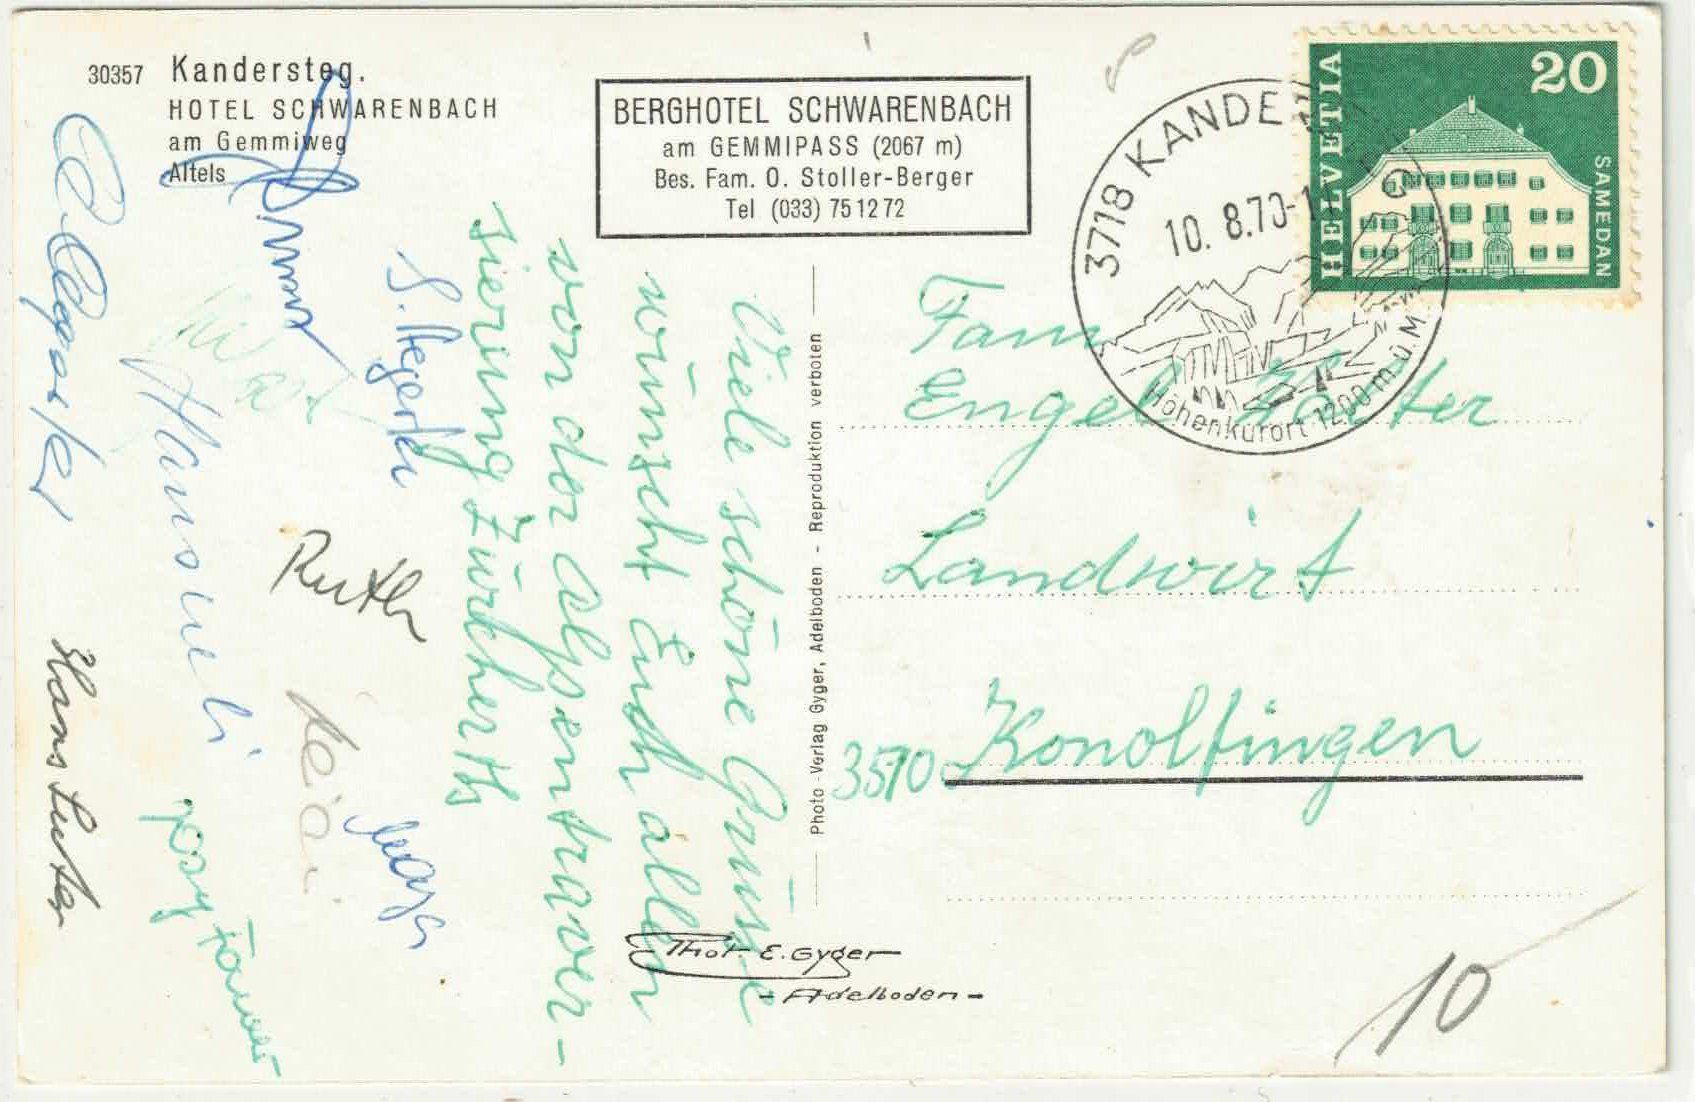 30357 Kandersteg.
HOTEL SCHWARENBACH
am Gemmiweg
Altels
BERGHOTEL SCHWARENBACH
am GEMMIPASS (2067 m)
Bes. Fam. O. Stoller-Berger
Tel (033) 75 12 72
3718 KANDERSTEG
10. 8.70-1
Höhenkurort 1200 m.ü.M.
HELVETIA
20
SAMEDAN
Viele schöne Grüsse
wünscht Euch allen
von der Alpentraver-
sierung Zürcherts
S. Hegerter
Ruth
Heidi
Maya
Hansueli
Rosy
Hans Suter
Photo-Verlag Gyger, Adelboden - Reproduktion verboten
Fam
Engel
Landwirt
3510 Konolfingen
Phot. E. Gyger
- Adelboden -
10